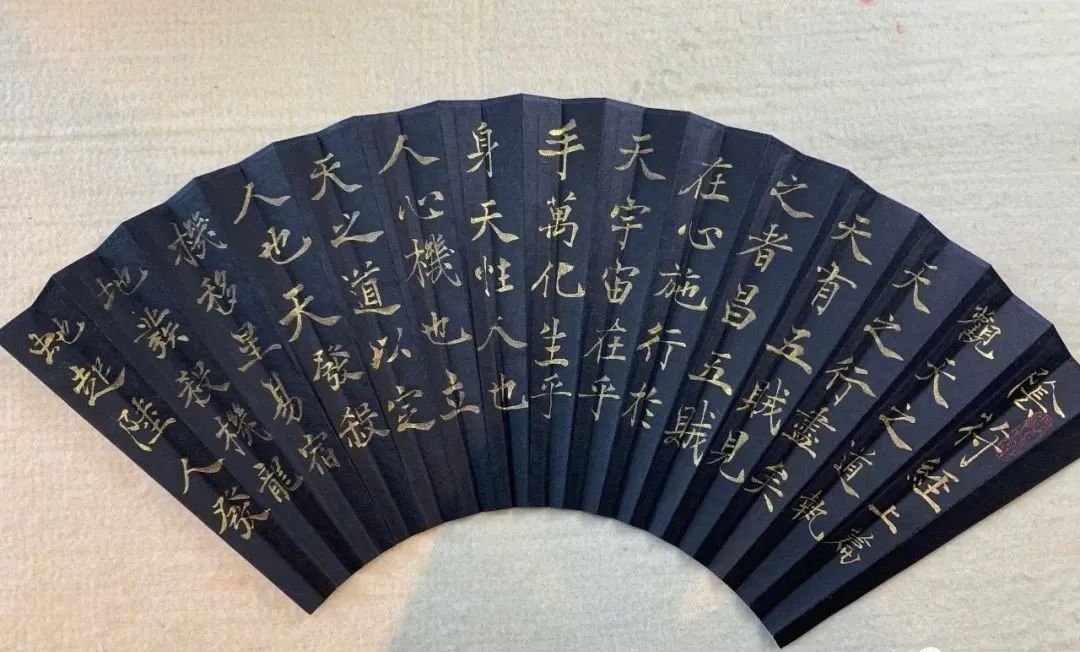 陰符經上篇
觀天之道執
天之行盡矣
天有五賊見
之者昌五賊
在心施行於
天宇宙在乎
手萬化生乎
身天性人也
人心機也立
天之道以定
人也天發殺
機移星易宿
地發殺機龍
蛇起陸人發